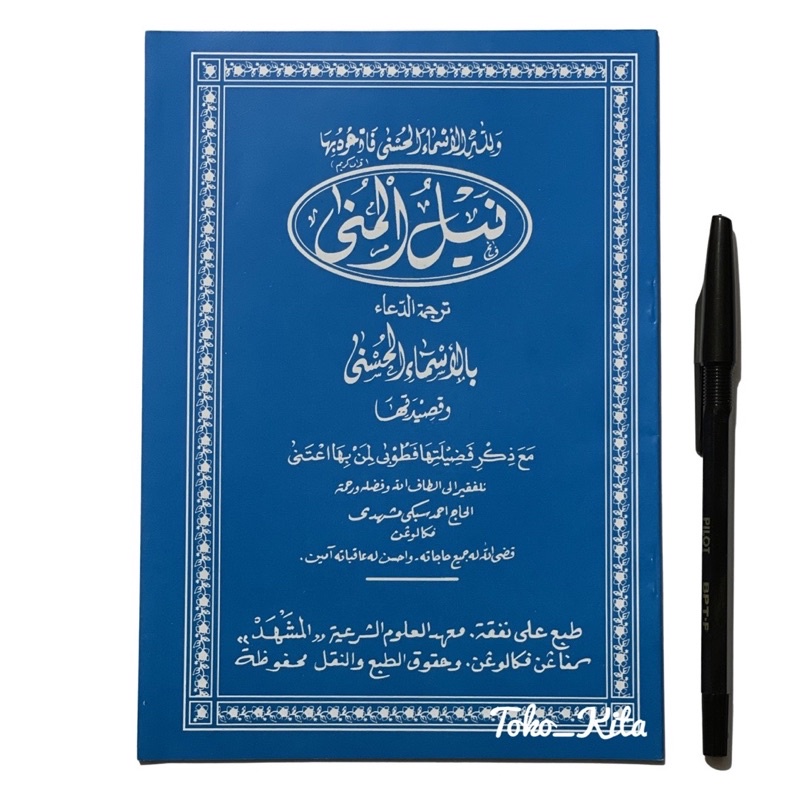 ولله الأسماء الحسنى فادعوه بها
(قرآن كريم)
نَيْلُ الْمُنَى
ترجمة الدعاء
بِالْأَسْمَاءِ الْحُسْنَى
وقصيدتها
مَعَ ذِكْرِ فَضِيْلَتِهَا فَطُوْبَى لِمَنْ بِهَا اعْتَنَى
للفقير الى الطاف الله وفضله ورحمة
الحاج احمد سبكى مشهدى
فكالوڠن
قضى الله له جميع حاجاته - واحسن له عاقباته آمين .
طبع على نفقة . معهد العلوم الشرعية „المَشْهَدْ”
سمفاڠن فكالوڠن . وحقوق الطبع والنقل محفوظة
PILOT BPT-F
Toko_Kita